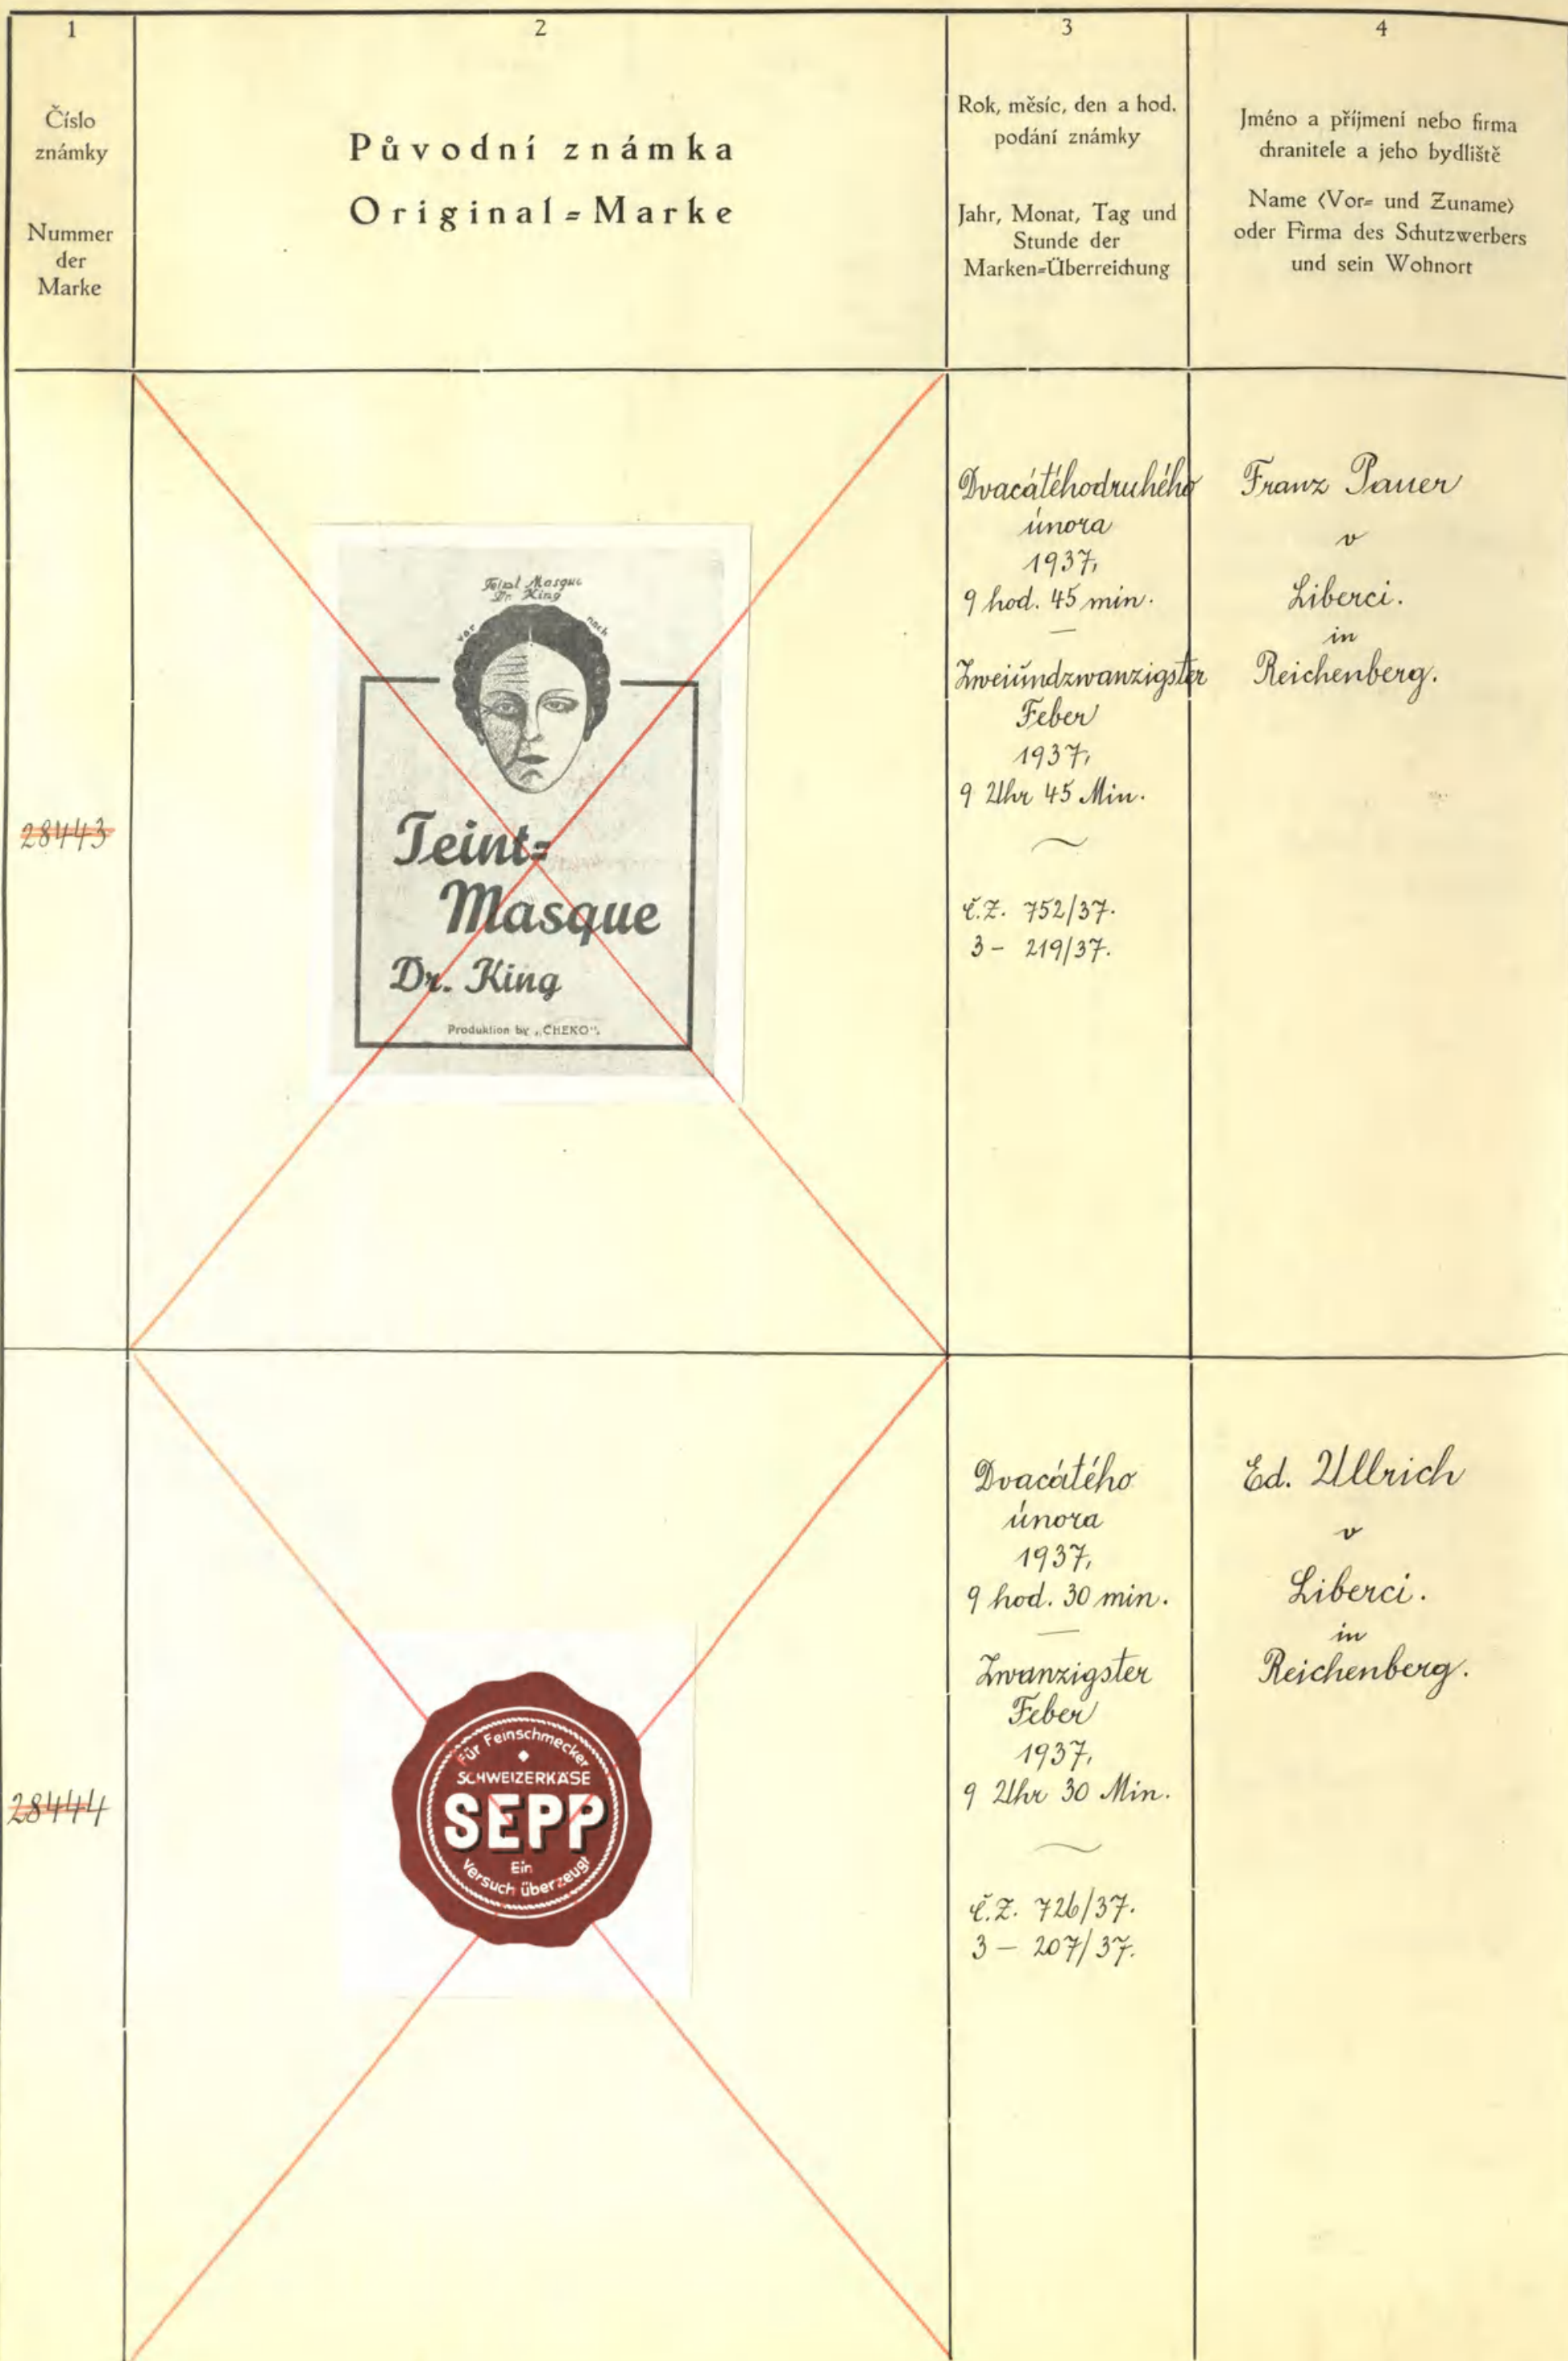 1
Číslo
známky
Nummer
der
Marke
2
Původní známka
Original=Marke
3
Rok, měsíc, den a hod.
podání známky
Jahr, Monat, Tag und
Stunde der
Marken=Überreichung
4
Jméno a příjmení nebo firma
chranitele a jeho bydliště
Name (Vor= und Zuname)
oder Firma des Schutzwerbers
und sein Wohnort
28443
Masque
Dr. King
vor
nach
Teint=
Masque
Dr. King
Produktion by „CHEKO".
Dvacátéhodruhého
února
1937,
9 hod. 45 min.
Zweiundzwanzigster
Feber
1937,
9 Uhr 45 Min.
Č.Z. 752/37.
3 - 219/37.
Franz Pauer
v
Liberci.
in
Reichenberg.
28444
Für Feinschmecker
SCHWEIZERKÄSE
SEPP
Ein
Versuch überzeugt
Dvacátého
února
1937,
9 hod. 30 min.
Zwanzigster
Feber
1937,
9 Uhr 30 Min.
Č.Z. 726/37.
3 - 207/37.
Ed. Ullrich
v
Liberci.
in
Reichenberg.